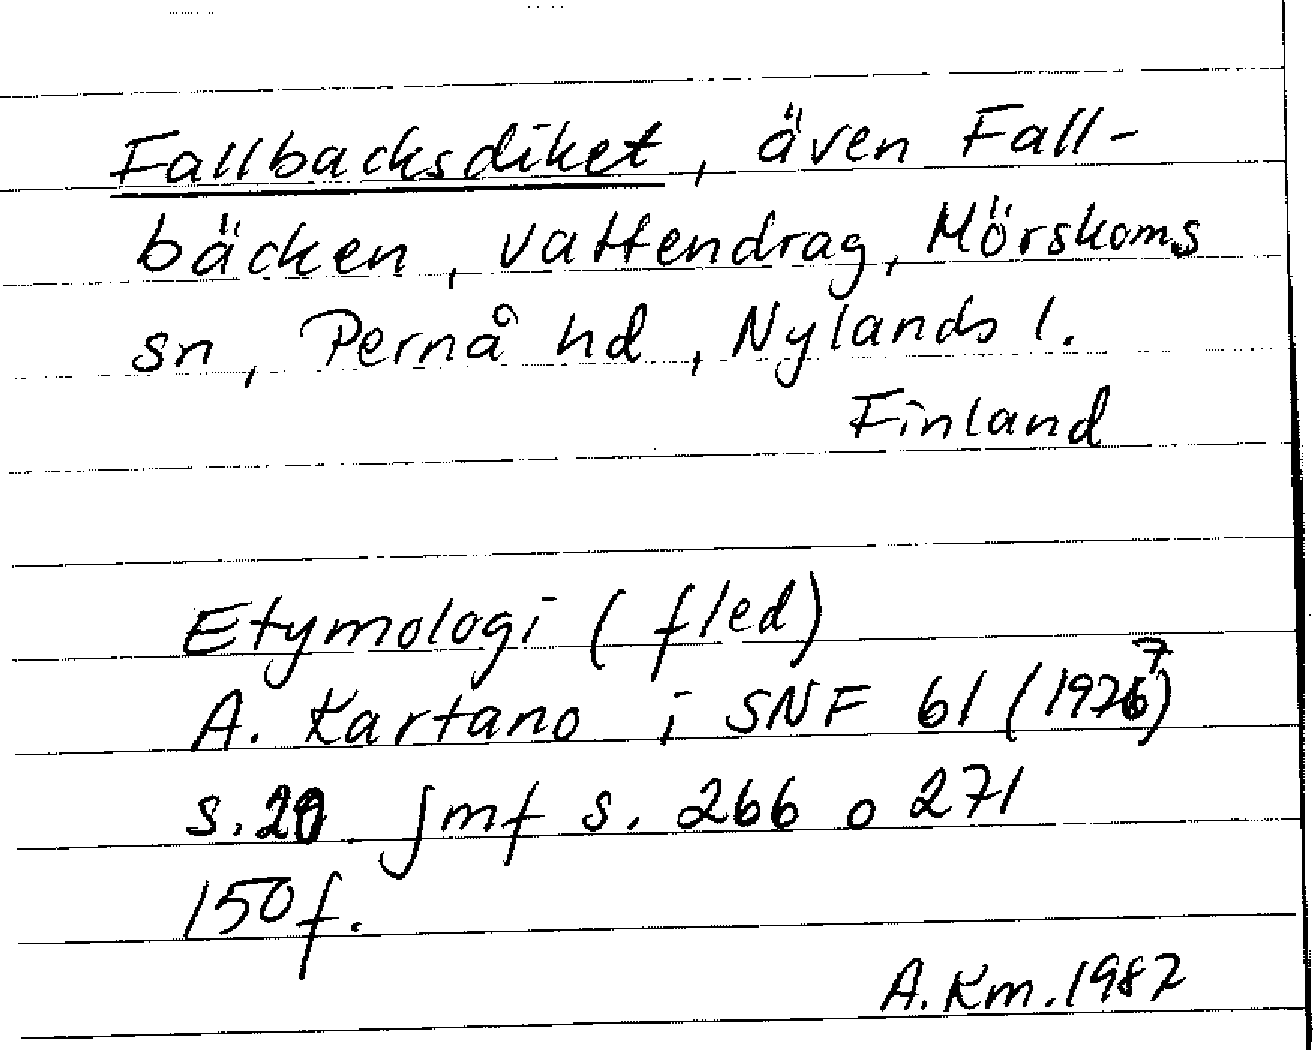 Fallbacksdiket, även Fall-
bäcken, vattendrag, Mörskoms
sn, Pernå hd, Nylands l.
Finland
Etymologi (fled)
A. Kartano i SNF 61 (1977)
s. 20 Jmf s. 266 o 271
150 f.
A. Km. 1982